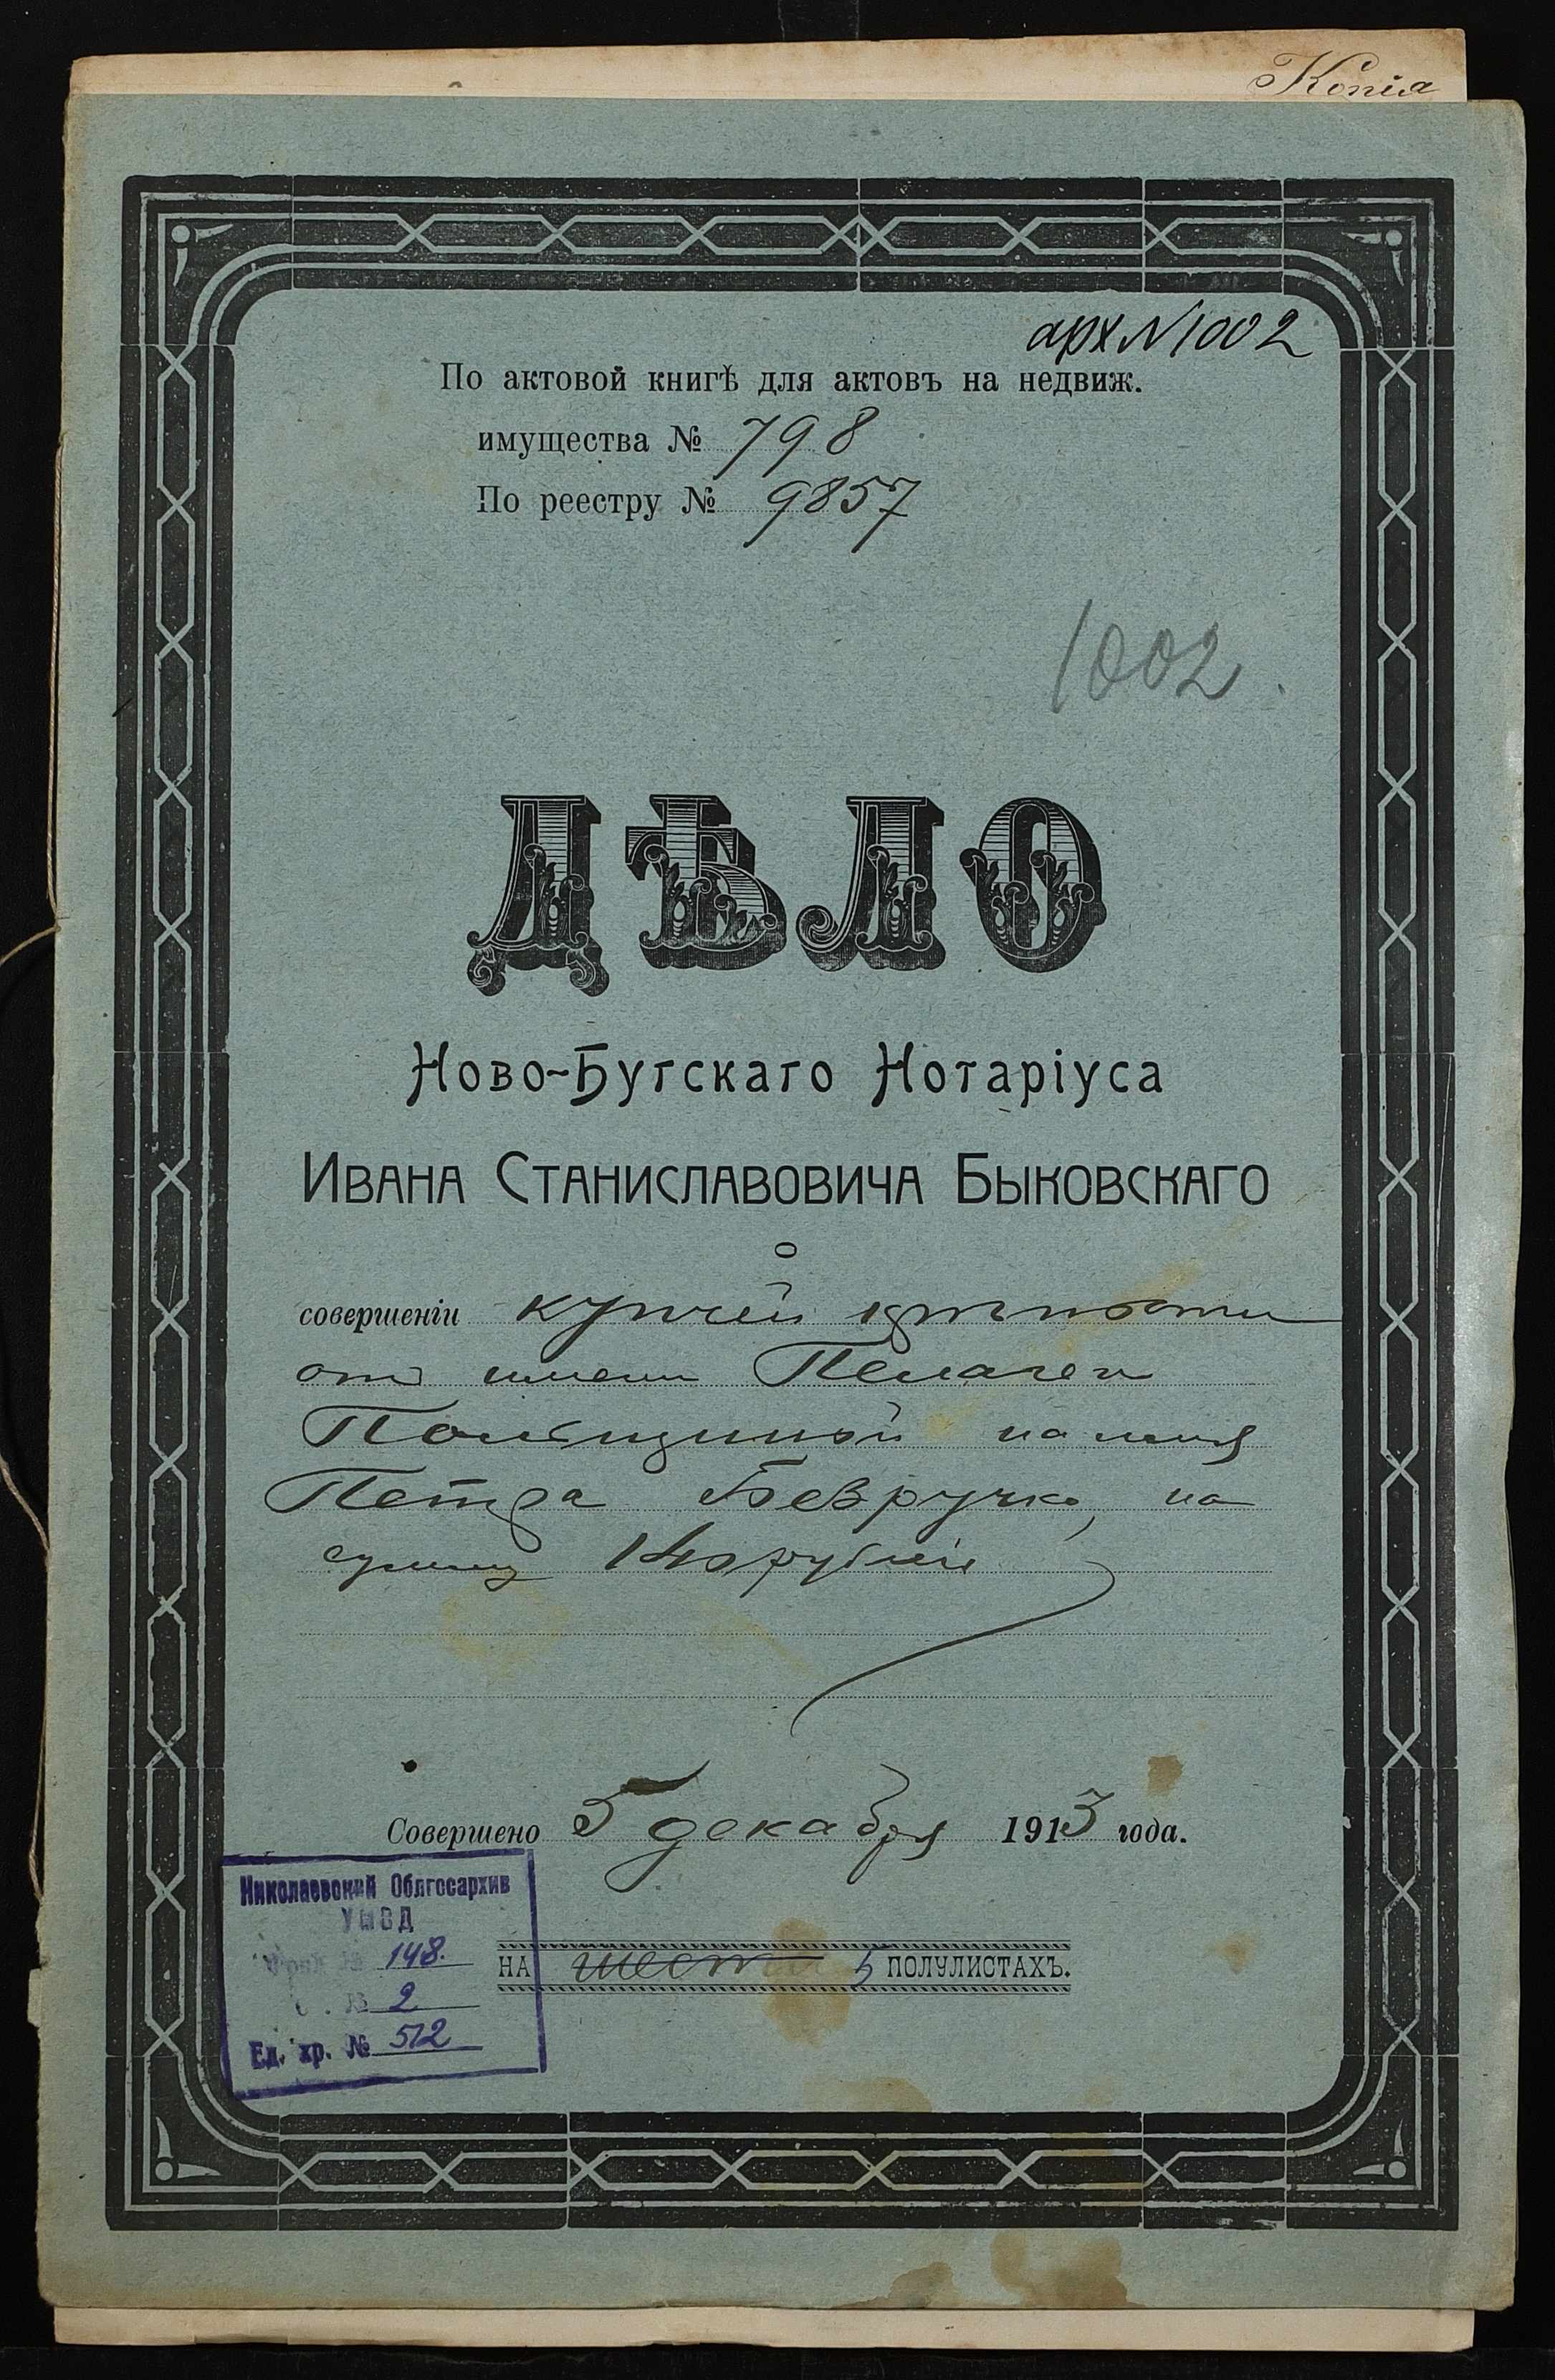 Копія
арх N 1002
По актовой книгѣ для актовъ на недвиж.
имущества № 798
По реестру № 9857
1002.
ДѢЛО
Ново-Бугскаго Нотаріуса
Ивана Станиславовича Быковскаго
о
совершеніи купчей крѣпости
отъ имени Пелагеи
на имя
Петра Безручко, на
сумму 140 рублей
Совершено 5 декабря 1913 года.
Николаевский Облгосархив
УМВД
Фонд № 148.
О. № 2
Ед. хр. № 512
НА шести 5 ПОЛУЛИСТАХЪ.